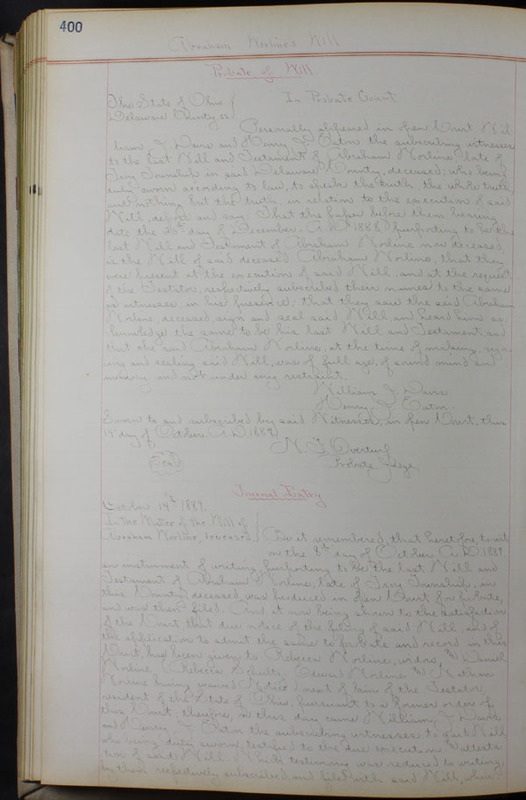 400
Abraham Norline's Will
Probate of Will
The State of Ohio
Delaware County, ss
In Probate Court
Personally appeared in open Court Wil-
liam J. Davis and Henry J. Eaton the subscribing witnesses
to the last Will and Testament of Abraham Norline late of
Township in said Delaware County, deceased, who being
duly sworn according to law, to speak the truth the whole truth
and nothing but the truth, in relation to the execution of said
Will, depose and say: That the paper before them bearing
date the day of December A.D. 1888, purporting to be the
last Will and Testament of Abraham Norline now deceased
is the Will of said deceased Abraham Norline, that they
were present at the execution of said Will, and at the request
of the Testator, respectively subscribed their names to the same
as witnesses, in his presence; that they saw the said Abraham
Norline, deceased, sign and seal said Will, and heard him ac-
knowledge the same to be his last Will and Testament, and
that the said Abraham Norline, at the time of making, sign-
ing and sealing said Will, was of full age, of sound mind and
memory and not under any restraint.
William J. Davis
Henry J. Eaton
Sworn to and subscribed by said Witnesses, in open Court, this
day of October A.D. 1889
N. J. Overturf
Probate Judge
Journal Entry
October 14th 1889.
In the Matter of the Will of
Abraham Norline, deceased.
Be it remembered, that heretofore, to wit
on the 8th day of October A.D. 1889
an instrument of writing purporting to be the last Will and
Testament of Abraham Norline, late of Township, in
this County deceased, was produced in open Court for Probate,
and was then filed. And it now being shown to the satisfaction
of the Court that due notice of the filing of said Will and of
the application to admit the same to probate and record in this
Court has been given to Rebecca Norline, widow, and Daniel
Norline, Rebecca Edwin Norline and Nathan
Norline having waived Notice, next of kin of the Testator,
resident of the State of Ohio, pursuant to a former order of
this Court; therefore, on this day came William J. Davis,
and Henry J. Eaton the subscribing witnesses to said Will
who being duly sworn testified to the due execution & attesta-
tion of said Will. Which testimony was reduced to writing,
by them respectively subscribed, and filed with said Will, which